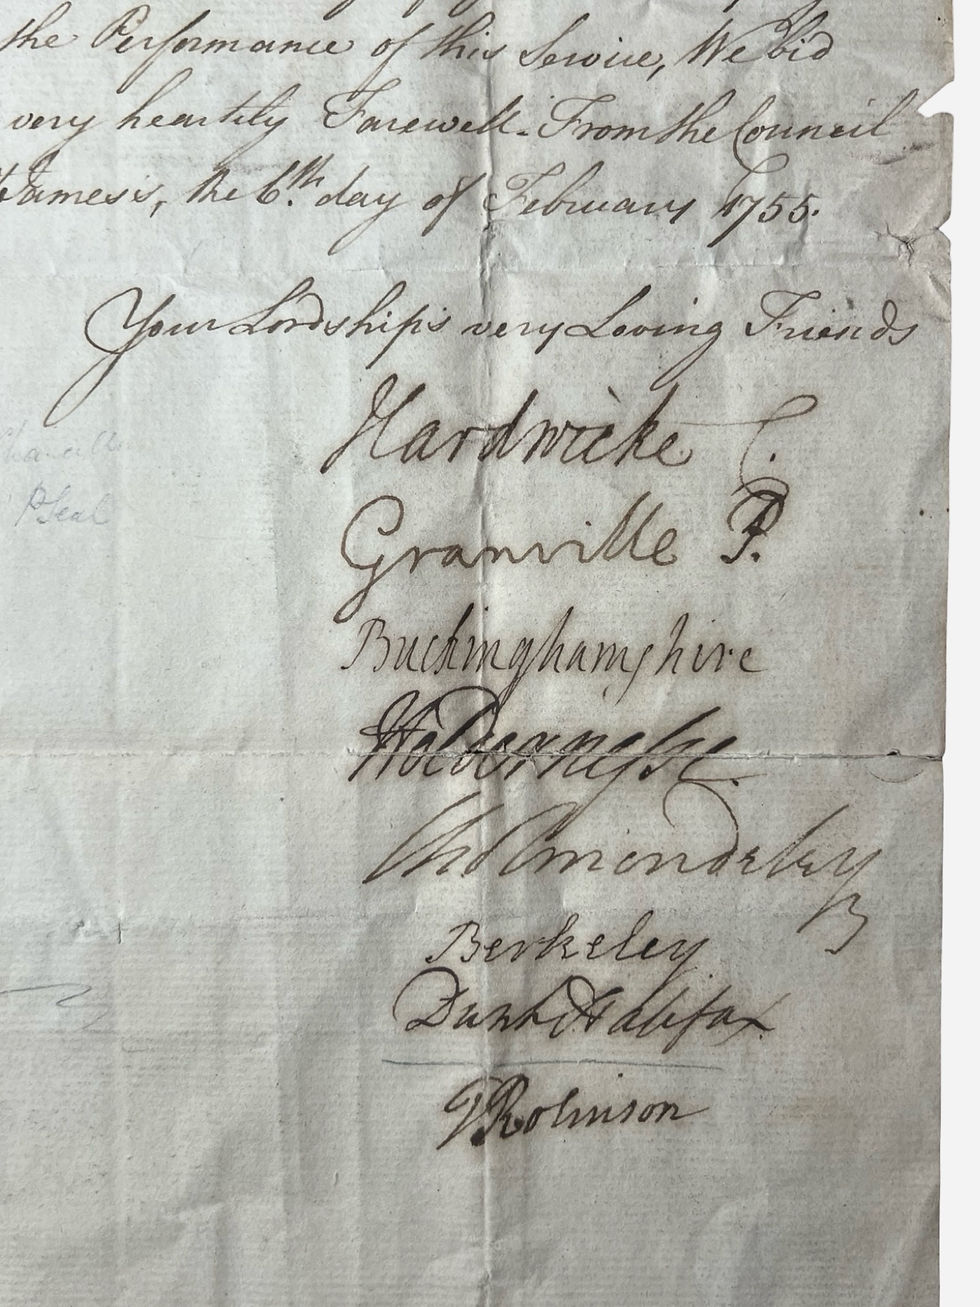 the Performance of this Service, We bid
very heartily Farewell. From the Council
James's, the 6th. day of February 1755.
Your Lordship's very Loving Friends
Hardwicke C.
Granville P.
Buckinghamshire
Holdernesse.
P Seal
Cholmondeley
Berkeley
Dunk Halifax.
T Robinson